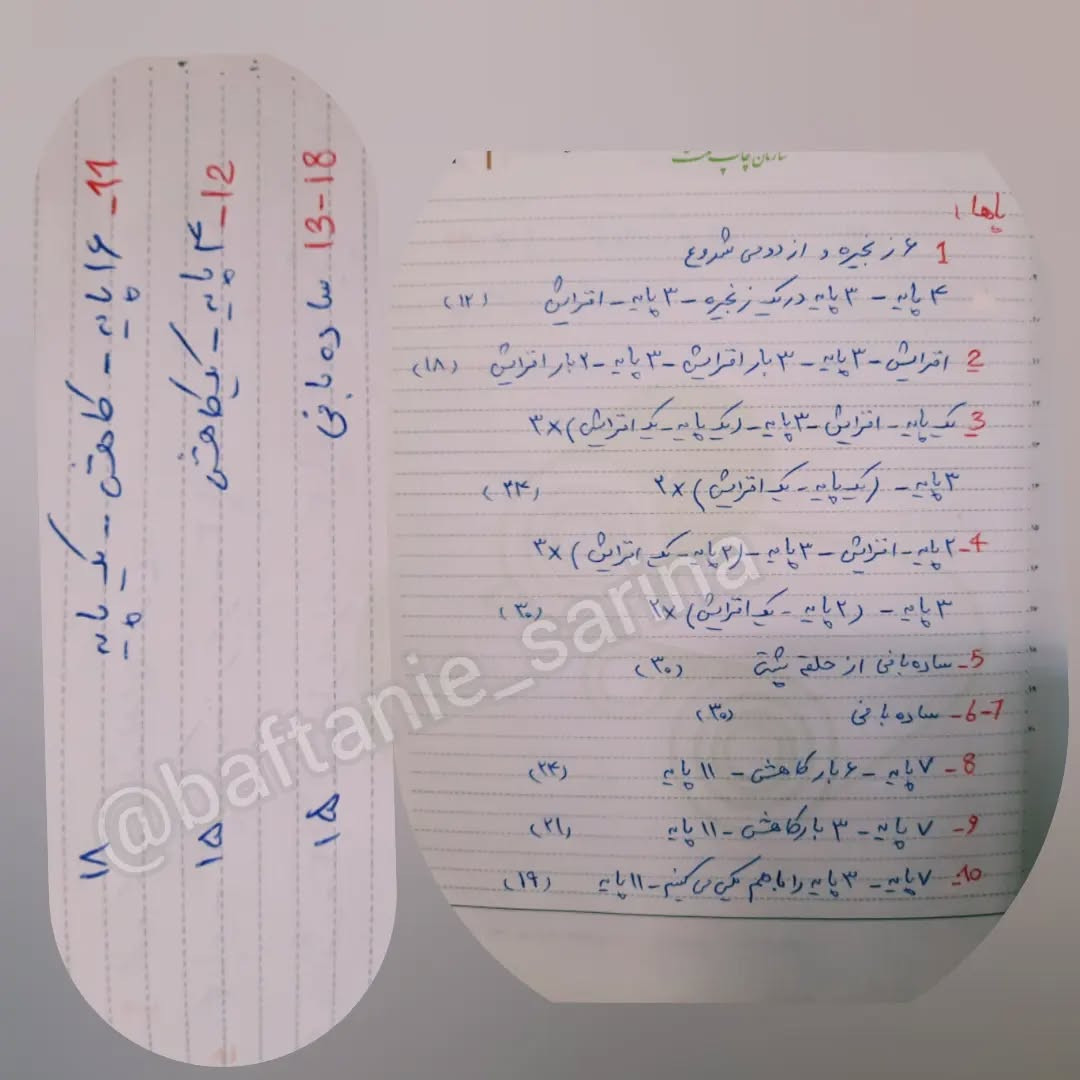 سازمان چاپ
پاها:
1 ۶ زنجیره و از دومی شروع
۴ پایه - ۳ پایه در یک زنجیره - ۳ پایه - افزایش (۱۲)
2 افزایش - ۳ پایه - ۳ بار افزایش - ۳ پایه - ۲ بار افزایش (۱۸)
3 یک پایه - افزایش - ۳ پایه - (یک پایه - یک افزایش) ×۳
۳ پایه - (یک پایه - یک افزایش) ×۲ (۲۴)
4- ۲ پایه - افزایش - ۳ پایه - (۲ پایه - یک افزایش) ×۳
۳ پایه - (۲ پایه - یک افزایش) ×۲ (۳۰)
5- ساده بافی از حلقه پشتی (۳۰)
6-7- ساده بافی (۳۰)
8- ۷ پایه - ۶ بار کاهش - ۱۱ پایه (۲۴)
9- ۷ پایه - ۳ بار کاهش - ۱۱ پایه (۲۱)
10- ۷ پایه - ۳ پایه را باهم یکی می کنیم - ۱۱ پایه (۱۹)
11- ۱۶ پایه - کاهش - یک پایه ۱۸
12- ۴ پایه - یک کاهش ۱۵
13-18 ساده بافی ۱۵
@baftanie_sarina